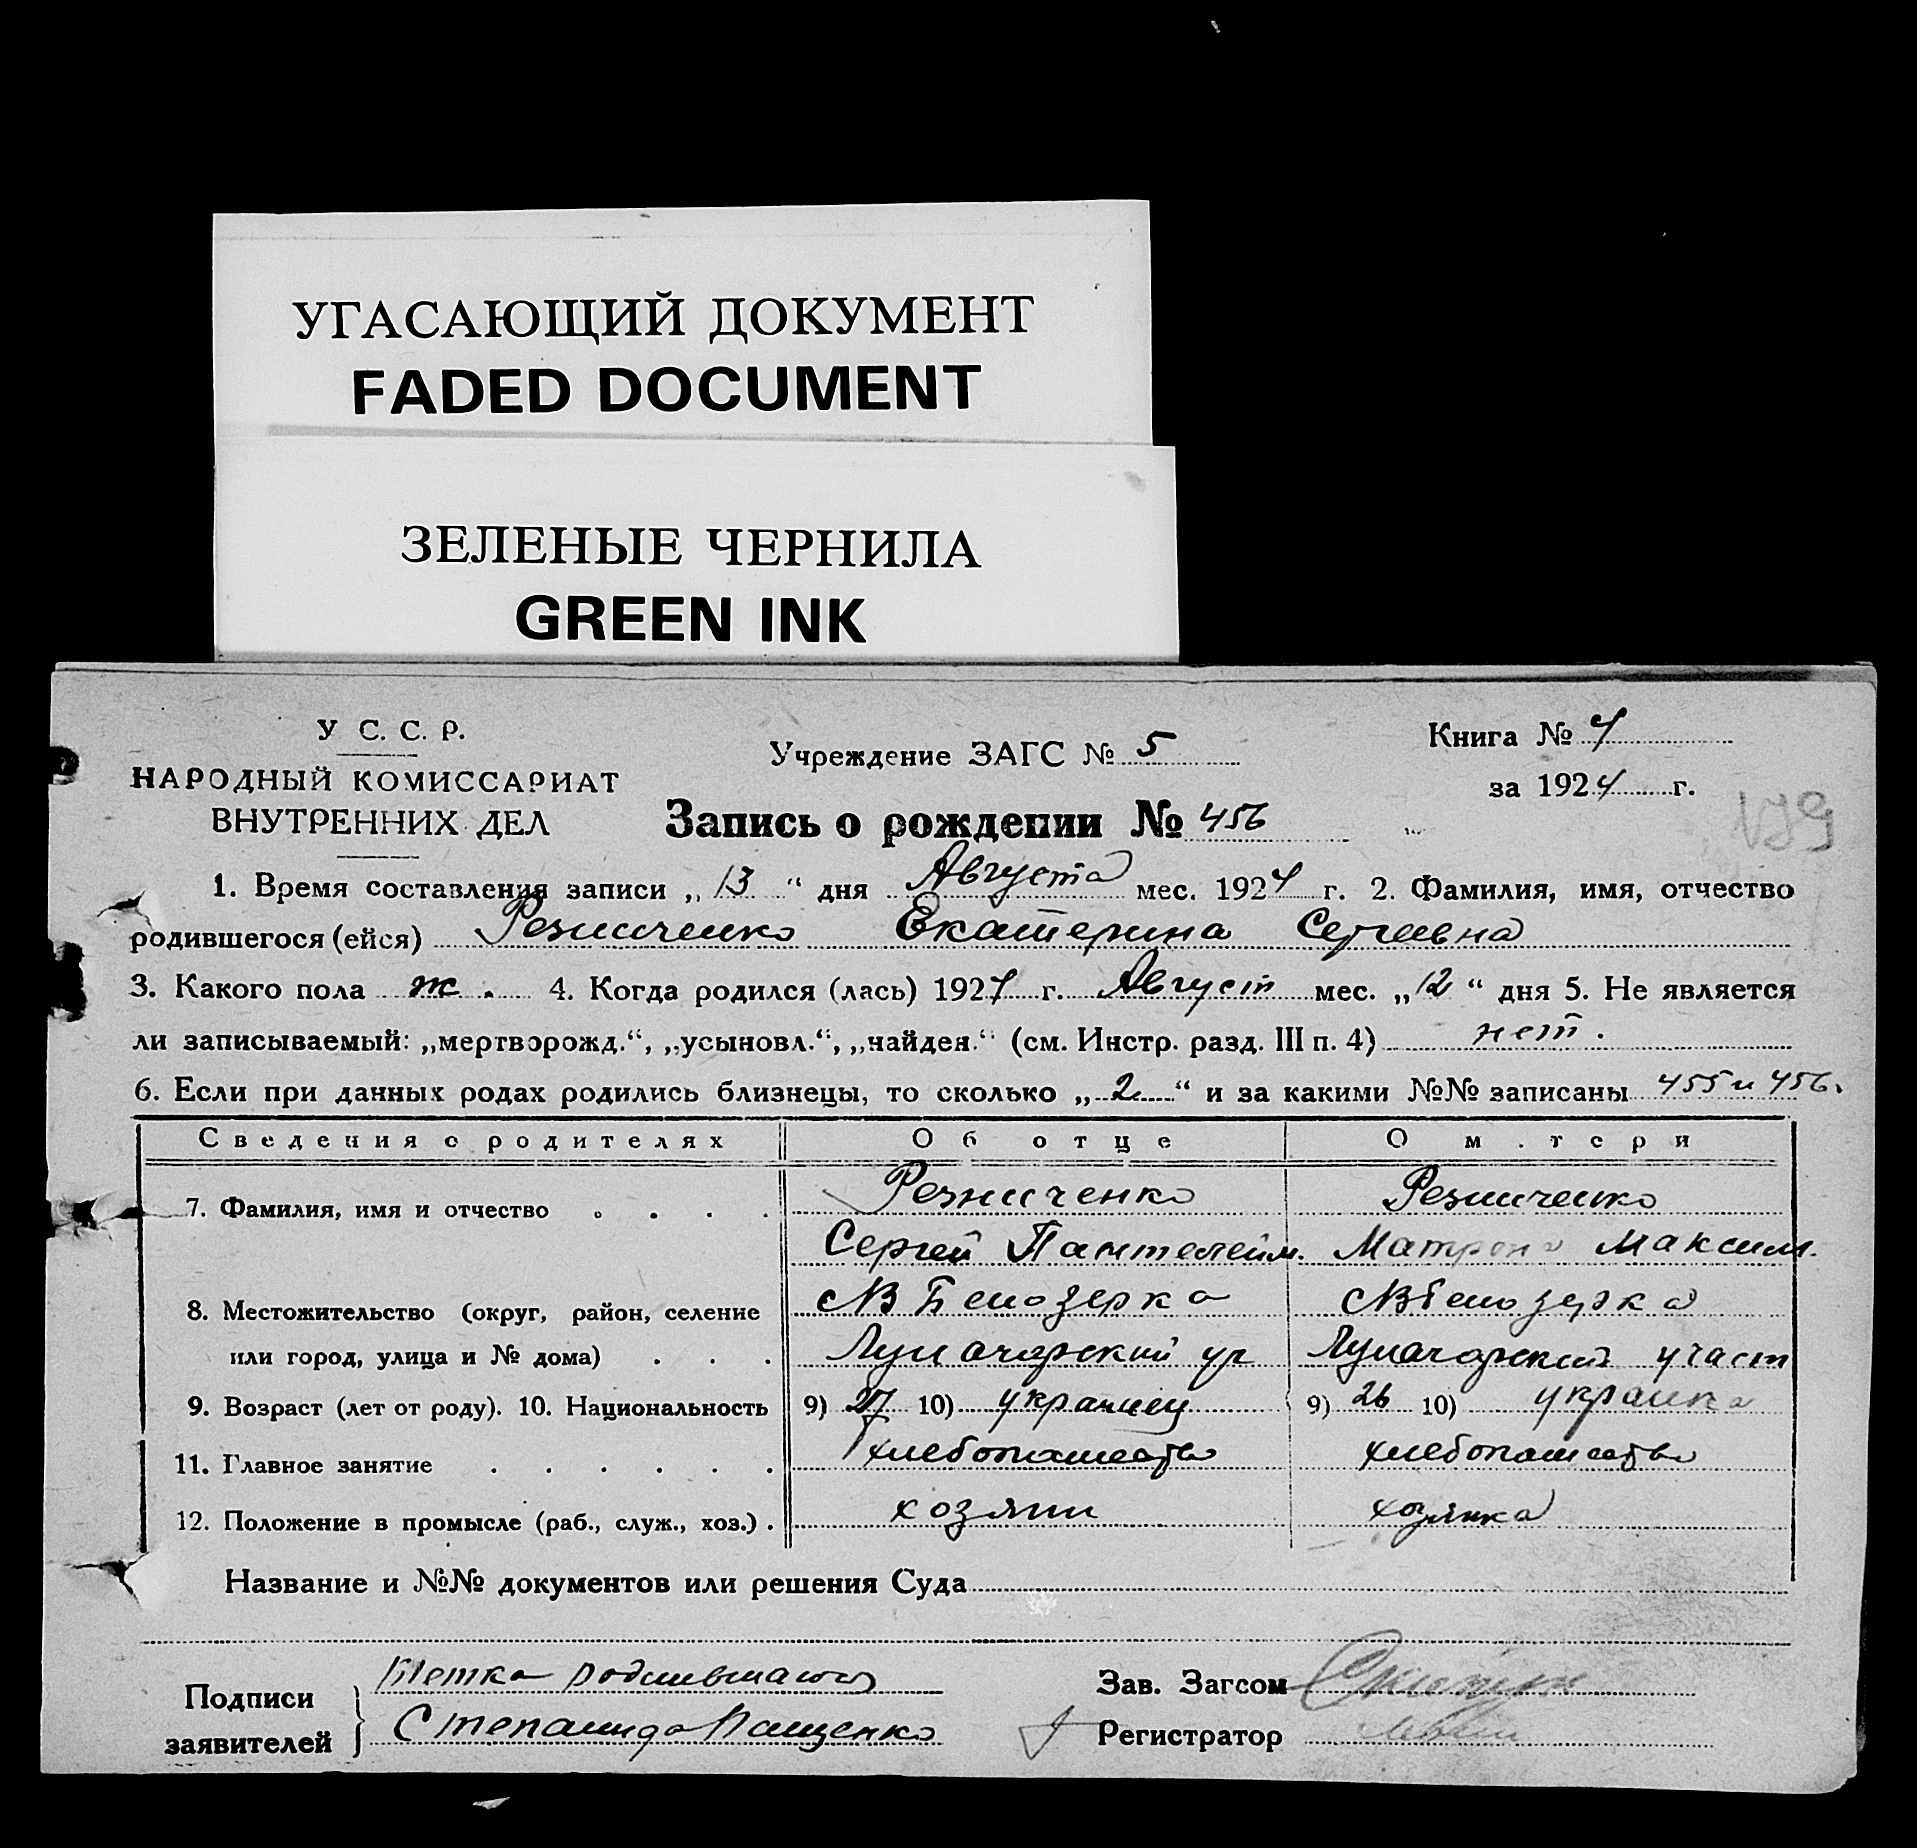 УГАСАЮЩИЙ ДОКУМЕНТ
FADED DOCUMENT
ЗЕЛЕНЫЕ ЧЕРНИЛА
GREEN INK
У С. С. Р.
НАРОДНЫЙ КОМИССАРИАТ
ВНУТРЕННИХ ДЕЛ
Учреждение ЗАГС № 5
Книга № 4
за 1924 г.
179
Запись о рождении № 456
1. Время составления записи „13“ дня Августа мес. 1924 г. 2. Фамилия, имя, отчество
родившегося (ейся) Резниченко Екатерина Сергеевна
3. Какого пола ж. 4. Когда родился (лась) 1924 г. Август мес. „12“ дня 5. Не является
ли записываемый: „мертворожд.“, „усыновл.“, „найден.“ (см. Инстр. разд. III п. 4) нет.
6. Если при данных родах родились близнецы, то сколько „2“ и за какими №№ записаны 455 и 456.
Сведения о родителях Об отце О м.тери
7. Фамилия, имя и отчество Резниченко Резниченко
Сергей Пантелейм. Матрона Максим.
8. Местожительство (округ, район, селение Белозерка Белозерка
или город, улица и № дома)
9. Возраст (лет от роду). 10. Национальность 9) 27 10) украинец 9) 26 10) украинка
11. Главное занятие хлебопашество хлебопашество
12. Положение в промысле (раб., служ., хоз.) хозяин хозяйка
Название и №№ документов или решения Суда
Подписи заявителей
Тетка родившагося
Степанида Пащенко
Зав. Загсом
Регистратор